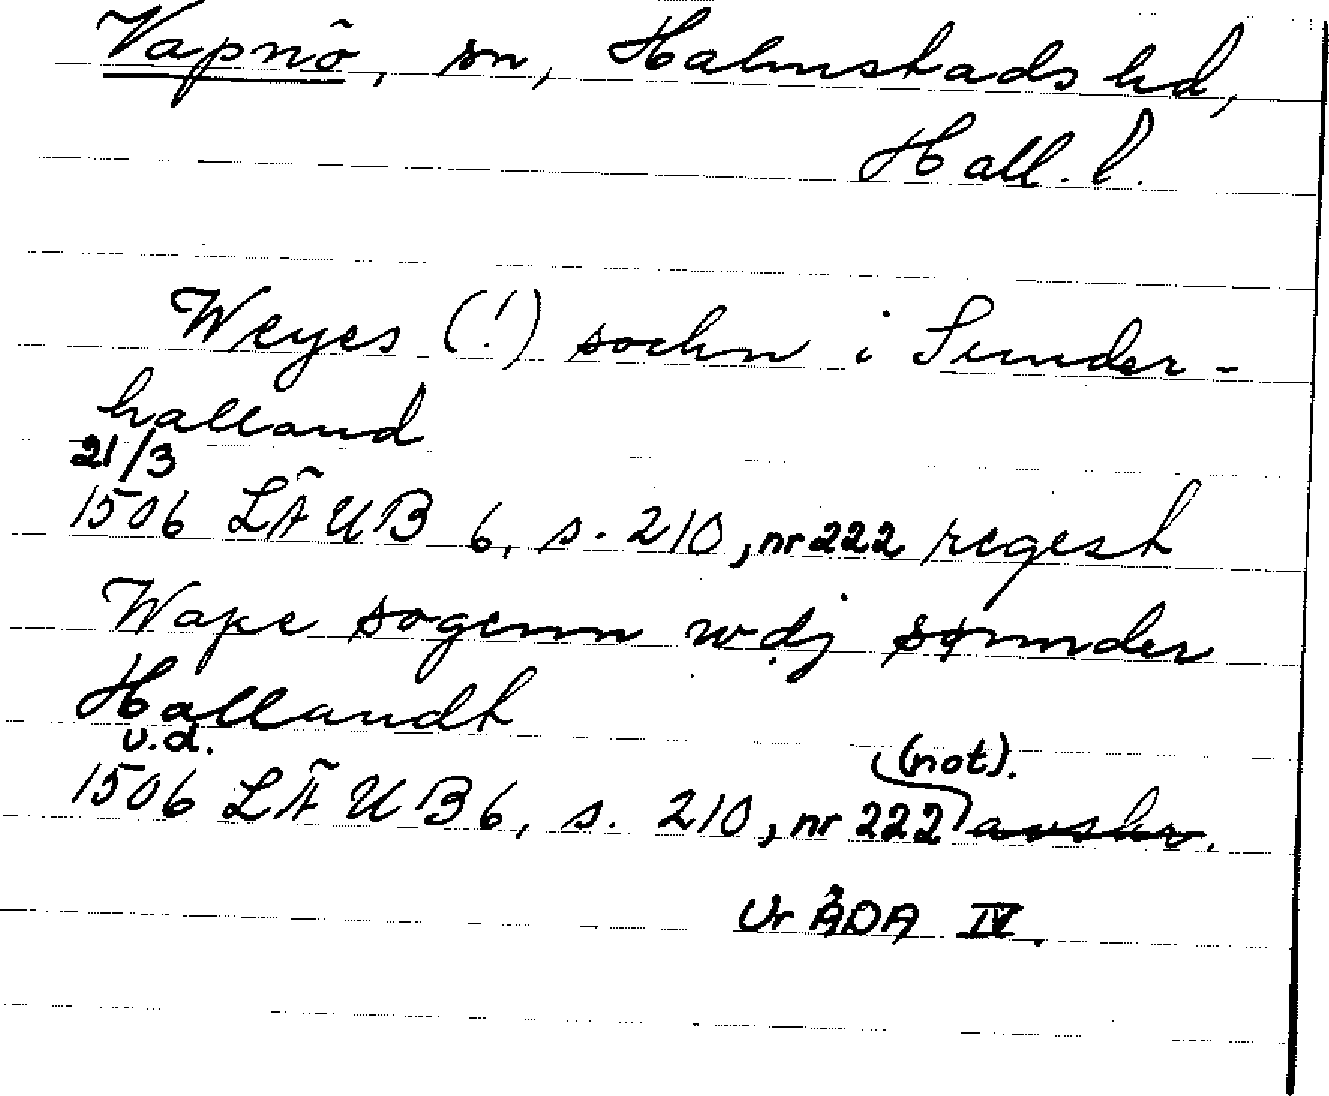 Vapnö, sn, Halmstads hd,
Hall. l.
Weyes (!) sochn i Sunder-
halland
21/3
1506 LÄUB 6, s. 210, nr 222 regest
Wape sogenn wdj sønnder
Hallandt
u.d.
1506 LÄUB 6, s. 210, nr 222 (not).
avskr.
Ur ÄDA IV.